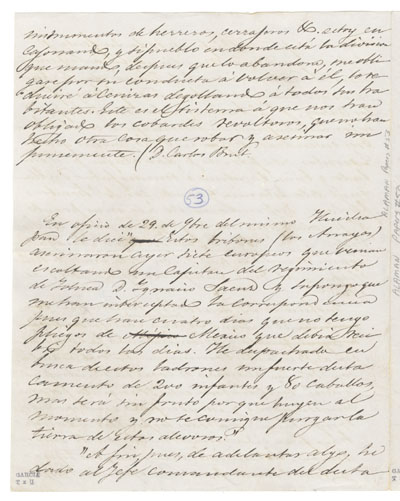 instrumentos de herreros, cerrageros &. estoy en
y si pueblo en donde está la division
que mando, despues que lo abandone, me obli
gase por su conducta á volver á él, lo re
duciré á cenizas degollando á todos sus ha
bitantes. Este es el sistema á que nos han
obligado los cobardes revoltosos, que no han
hecho otra cosa que robar y asesinar im
punemente. (D. Carlos
53
En oficio de 29 de 9bre del mismo
le dice "Estos bribones (los
asesinaron ayer siete europeos que venian
escoltando un Capitan del regimiento
de D. Ygnacio y supongo que
me han interceptado la correspondencia
pues que hace cuatro dias que no tengo
pliegos de Mexico que debia
todos los dias. He despachado en
busca de estos ladrones un fuerte desta
camento de 200 infantes y 80 caballos,
mas será sin fruto por que huyen al
momento y no se consigue purgar la
tierra de estos alevosos."
"A fin pues, de adelantar algo, he
dado al Jefe comandante del desta
ALAMAN Papers #53
GARCIA